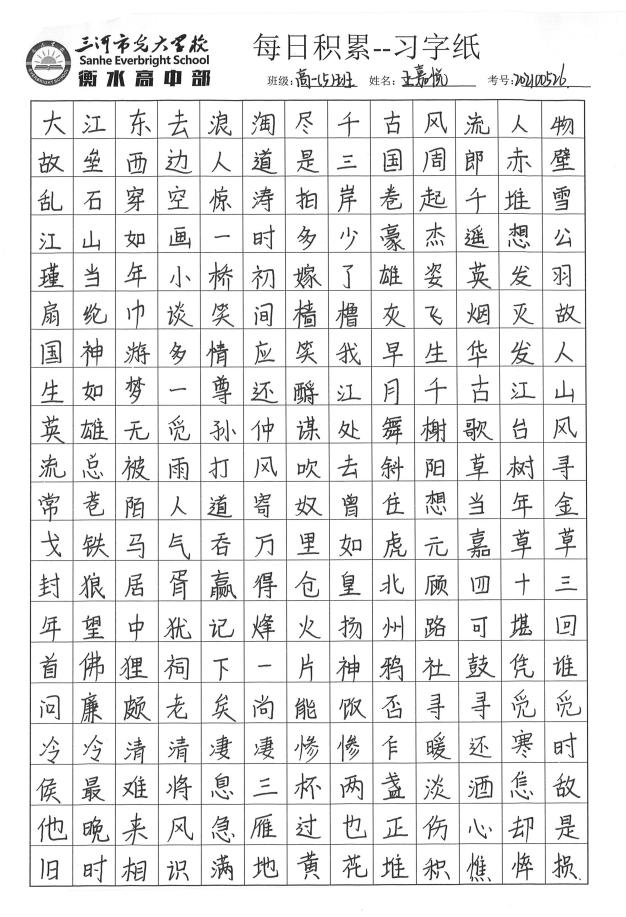 三河市光大学校
Sanhe Everbright School
衡水高中部
每日积累--习字纸
班级:高一(5)班 姓名:王嘉悦 考号:202100526
大江东去浪淘尽千古风流人物
故垒西边人道是三国周郎赤壁
乱石穿空惊涛拍岸卷起千堆雪
江山如画一时多少豪杰遥想公
瑾当年小桥初嫁了雄姿英发羽
扇纶巾谈笑间樯橹灰飞烟灭故
国神游多情应笑我早生华发人
生如梦一尊还酹江月千古江山
英雄无觅孙仲谋处舞榭歌台风
流总被雨打风吹去斜阳草树寻
常巷陌人道寄奴曾住想当年金
戈铁马气吞万里如虎元嘉草草
封狼居胥赢得仓皇北顾四十三
年望中犹记烽火扬州路可堪回
首佛狸祠下一片神鸦社鼓凭谁
问廉颇老矣尚能饭否寻寻觅觅
冷冷清清凄凄惨惨乍暖还寒时
侯最难将息三杯两盏淡酒怎敌
他晚来风急雁过也正伤心却是
旧时相识满地黄花堆积憔悴损